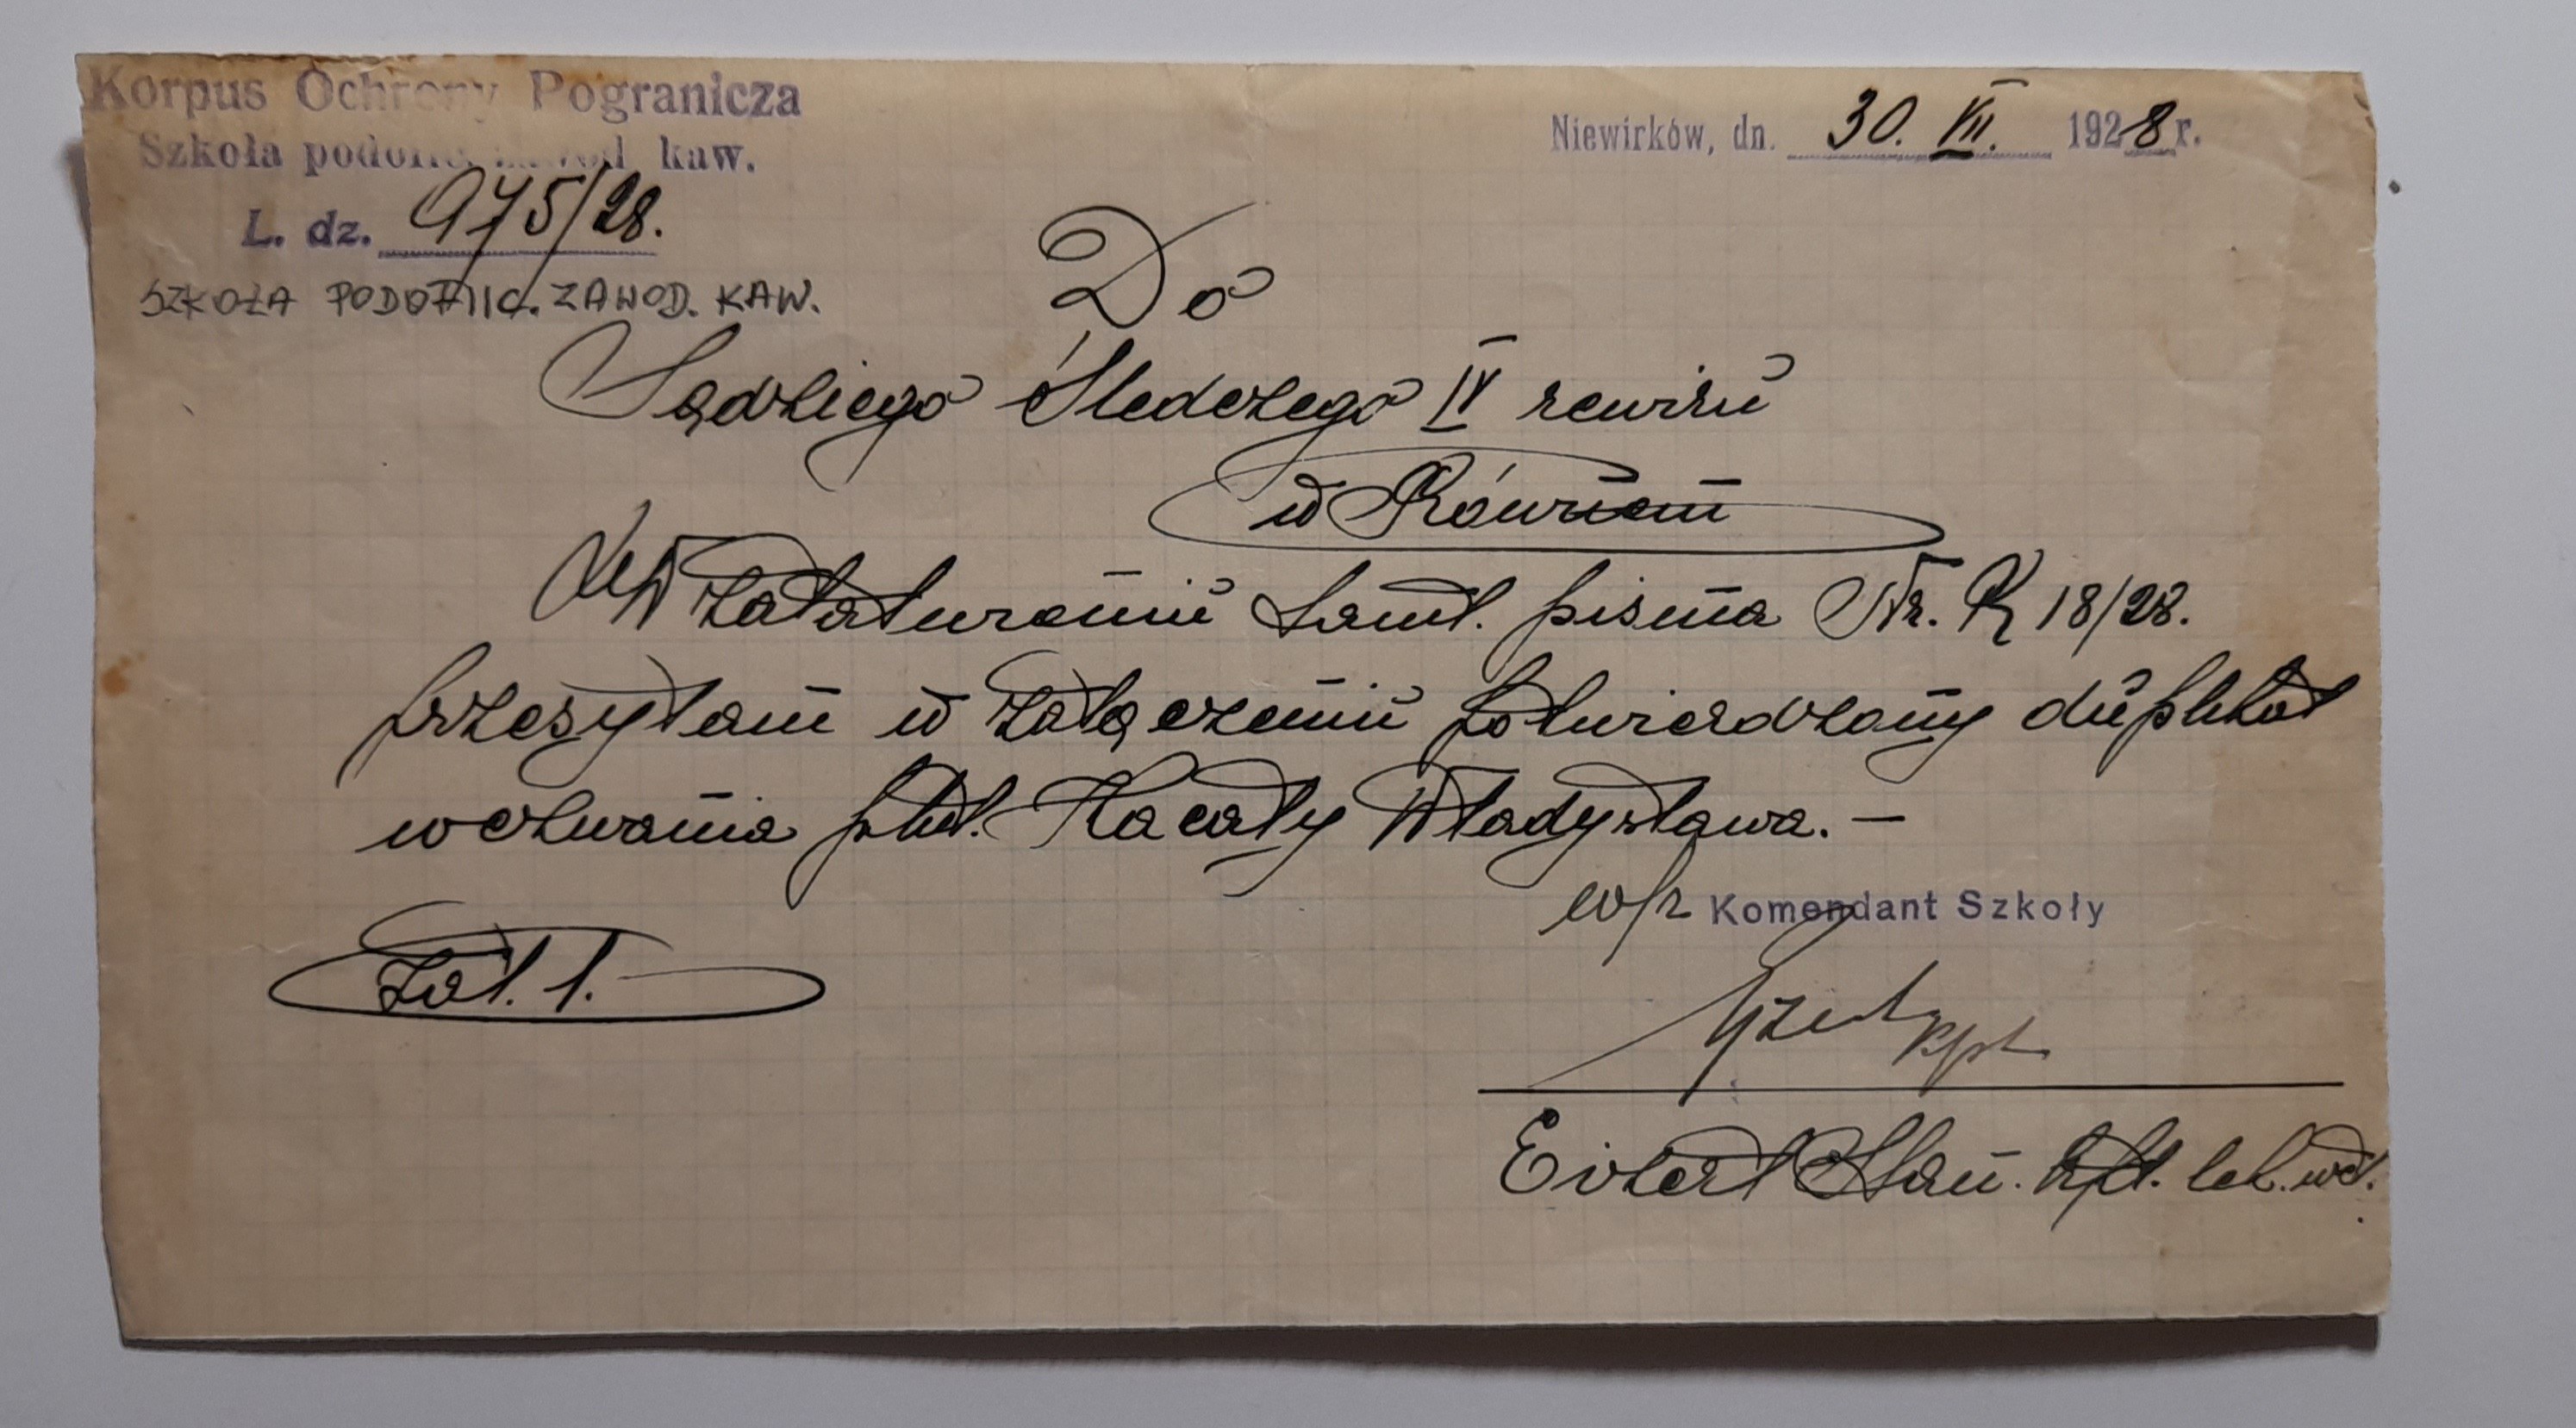 Korpus Ochrony Pogranicza
Niewirków, dn. 30. VII. 1928 r.
Szkoła podofic. zawod. kaw.
L. dz. 975/28.
SZKOŁA PODOFIC. ZAWOD. KAW.
Do
Sędziego Śledczego IV rewiru
w Równem
W załatwieniu tamt. pisma Nr. K 18/28.
przesyłam w załączeniu potwierdzony duplikat
wezwania plut. Kacały Władysława. —
w/z Komendant Szkoły
Zał. 1. —
kpt.
Stan. kpt. lek. wet.